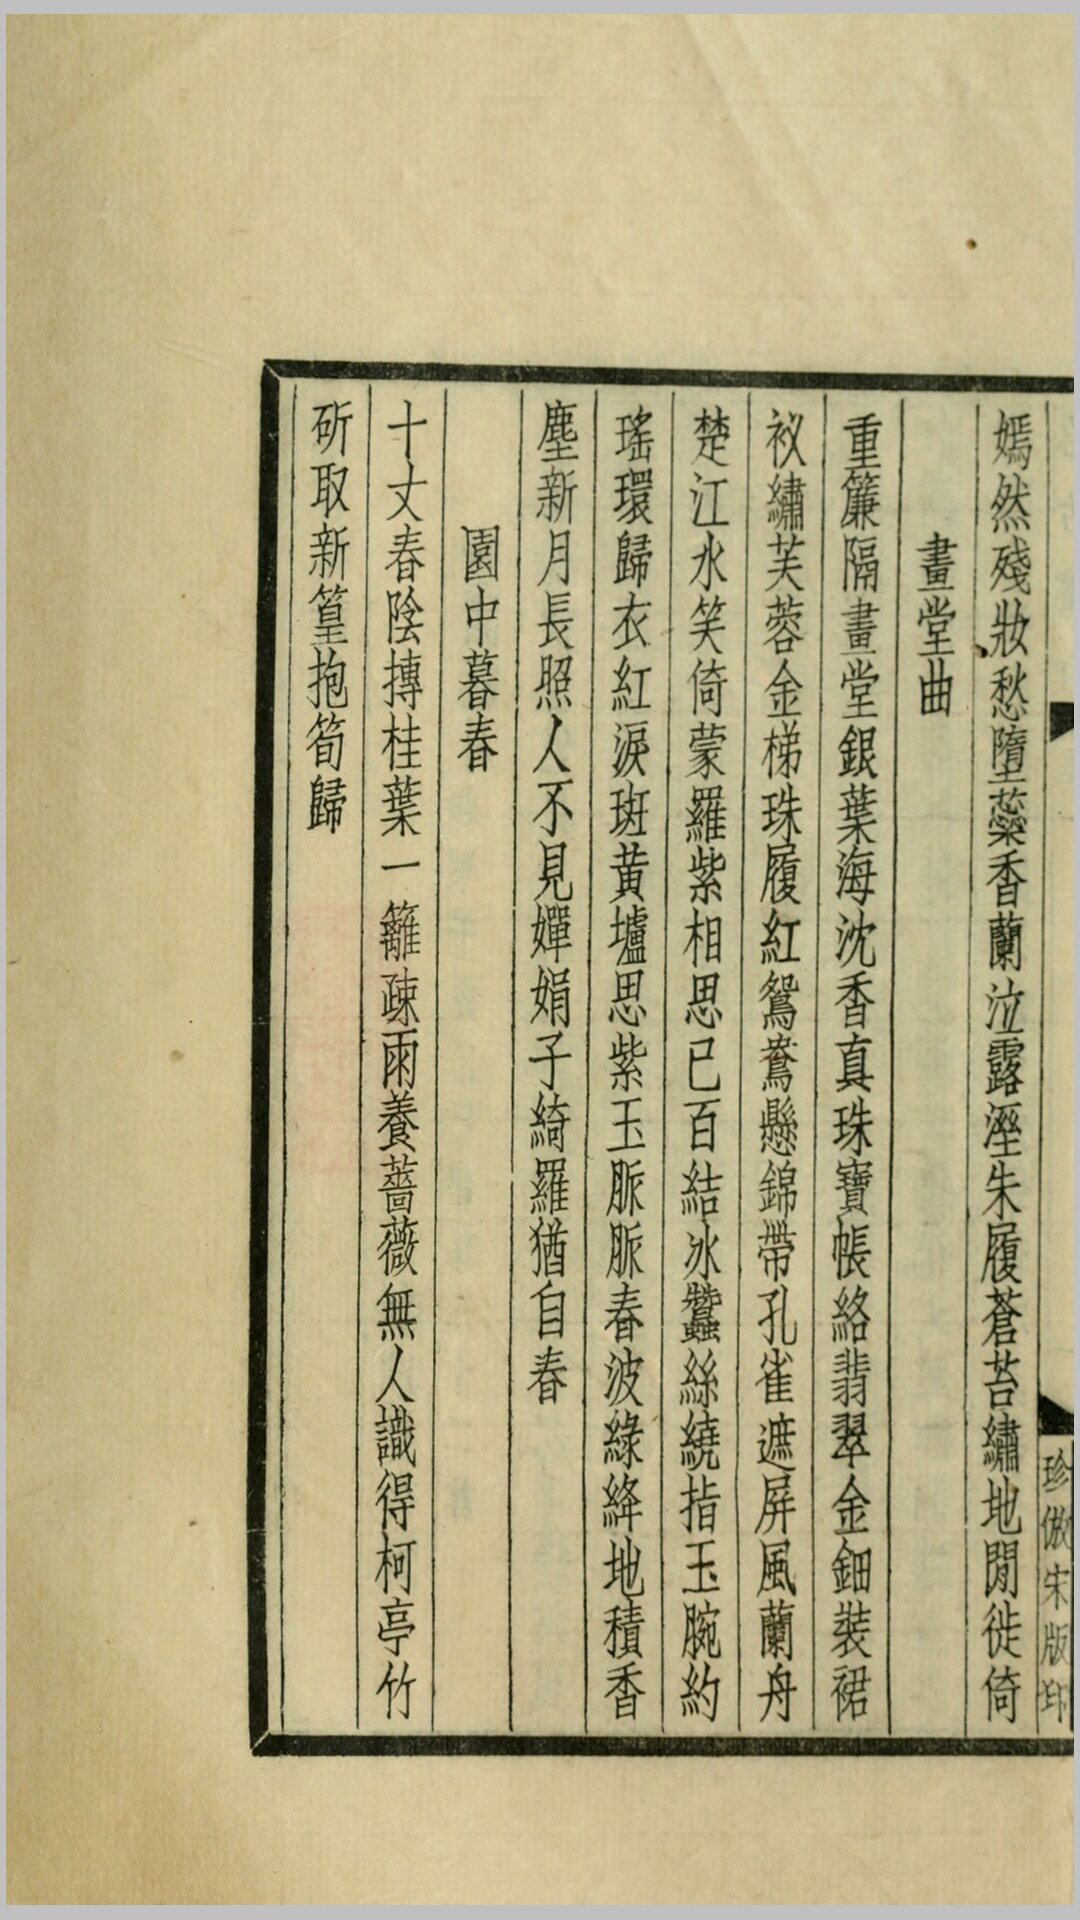 嫣然殘妝愁墮蘂香蘭泣露溼朱履蒼苔繡地閒徙倚
畫堂曲
重簾隔畫堂銀葉海沈香真珠寶帳絡翡翠金鈿裝裙
衩繡芙蓉金梯珠履紅鴛鴦懸錦帶孔雀遮屏風蘭舟
楚江水笑倚蒙羅紫相思已百結冰蠶絲繞指玉腕約
瑤環歸衣紅淚斑黃壚思紫玉脈脈春波綠絳地積香
塵新月長照人不見嬋娟子綺羅猶自春
園中暮春
十丈春陰摶桂葉一籬疎雨養薔薇無人識得柯亭竹
斫取新篁抱筍歸
珍倣宋版印